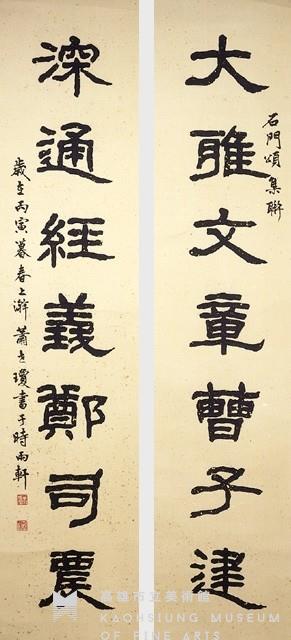 大雅文章曹子建
石門頌集聯
深通經義鄭司農
歲在丙寅暮春上澣蕭世瓊書于時雨軒
高雄市立美術館
KAOHSIUNG MUSEUM
OF FINE ARTS